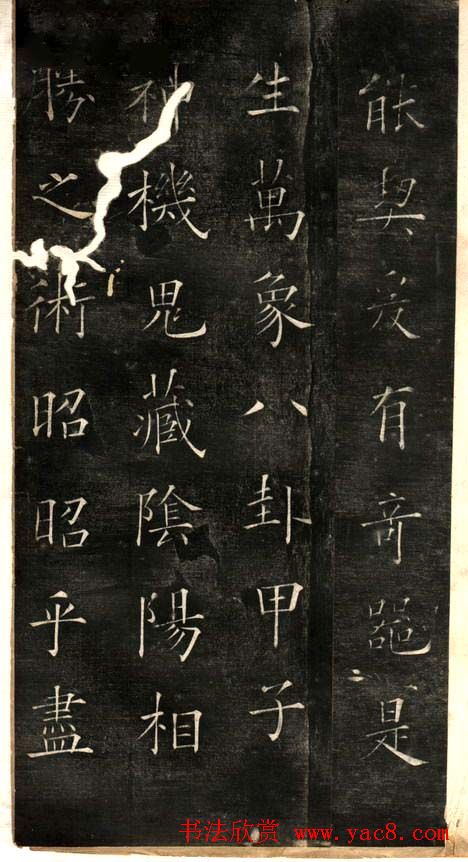 能契爰有奇器是
生萬象八卦甲子
神機鬼藏陰陽相
勝之術昭昭乎盡
书法欣赏 www.yac8.com